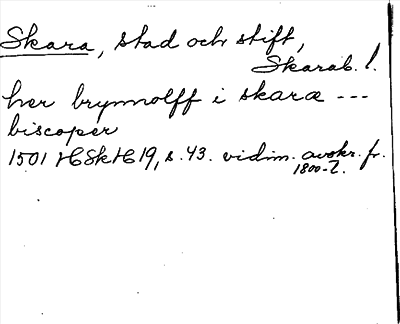 Skara, stad och stift,
Skarab. l.
her brynnolff i skaræ ---
biscoper
1501 HSkH 19, s. 43. vidim. avskr. fr.
1800-t.